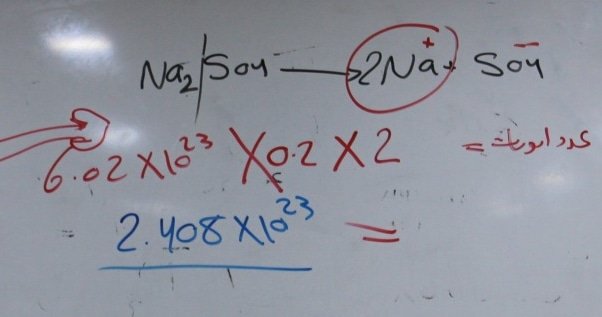 Na₂|SO4 ⟶ 2Na⁺ + SO4⁻⁻
6.02 X 10²³ X 0.2 X 2 = عدد ايونات
2.408 X 10²³ =